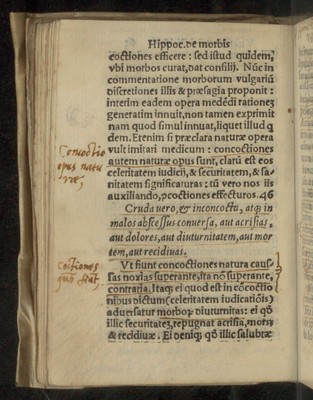 Hippoc. de morbis
coctiones efficere : sed istud quidem,
vbi morbos curat, dat consilij. Nũc in
commentatione morborum vulgariũ
discretiones illis & præsagia proponit :
interim eadem opera medẽdi rationeʒ
generatim innuit, non tamen exprimit
nam quod simul innuat, liquet illud q̃
dem. Etenim si præclara naturæ opera
vult imitari medicum : concoctiones
autem naturæ opus sunt, clarũ est eos
celeritatem iudicij, & securitatem, & sa-
nitatem significaturas : tũ vero nos iis
auxiliando, ꝯcoctiones effecturos. 46
Cruda vero, & inconcocta, atq; in
malos abscessus conuersa, aut acrisias,
aut dolores, aut diuturnitatem, aut mor
tem, aut recidiuas.
Concoctio
opus natu
ræ,
Vt fiunt concoctiones natura caus-
sas noxias superante, ita nõ superante,
contraria. Itaq; ei quod est in cõcoctio
nibus dictum (celeritatem iudicatiõis)
aduersatur morboꝝ diuturnitas : ei qđ
illic securitateʒ, repugnat acrisia, mors,
& recidiuæ. Ei deniq; qđ illic salubrẽ